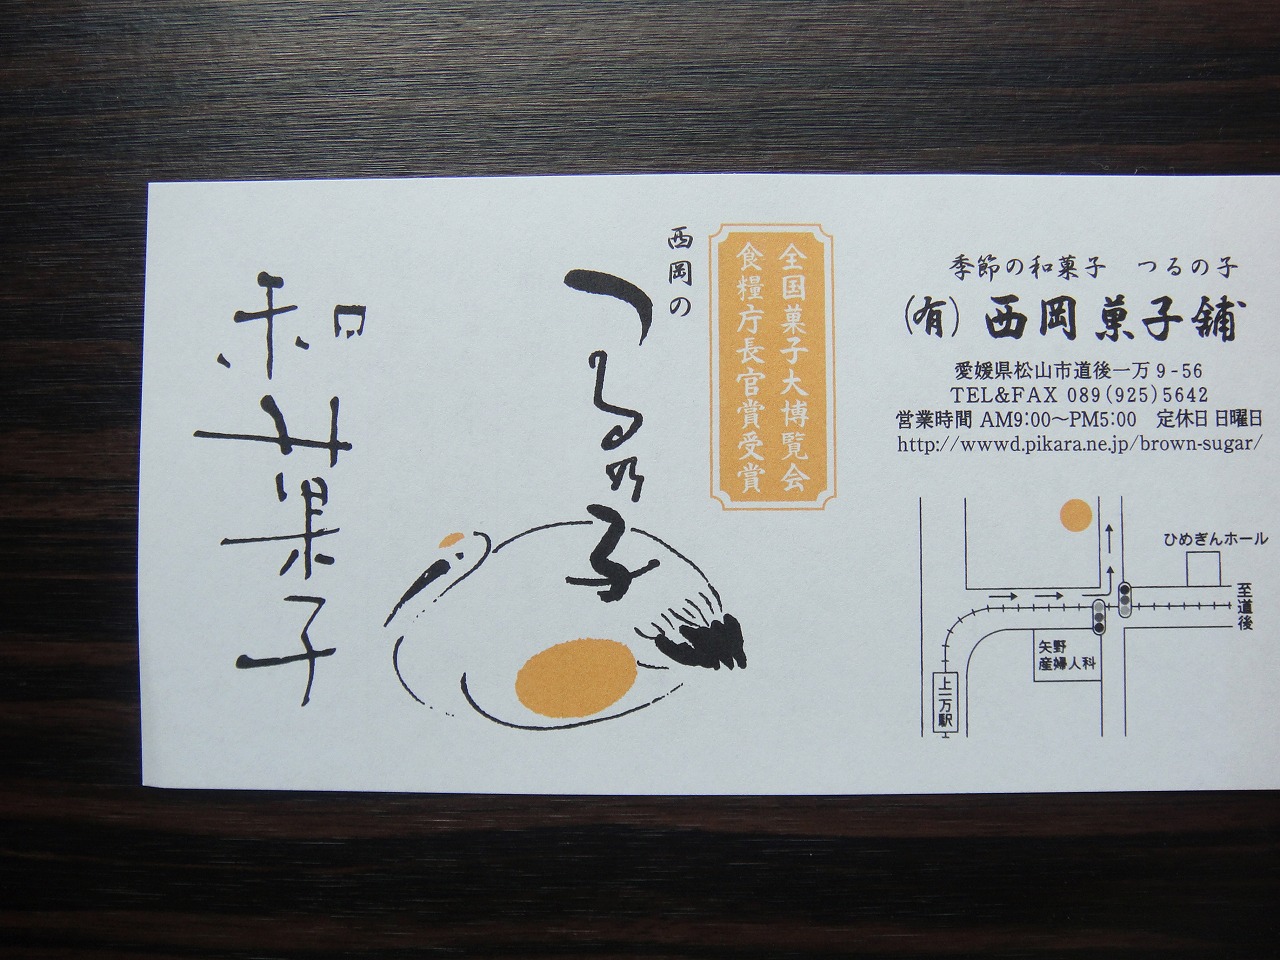 和菓子
西岡の
つる乃子
全国菓子大博覧会
食糧庁長官賞受賞
季節の和菓子　つるの子
(有) 西岡菓子舗
愛媛県松山市道後一万9-56
TEL&FAX 089(925)5642
営業時間 AM9:00〜PM5:00　定休日 日曜日
http://wwwd.pikara.ne.jp/brown-sugar/
ひめぎんホール
至道後
矢野
産婦人科
上一万駅